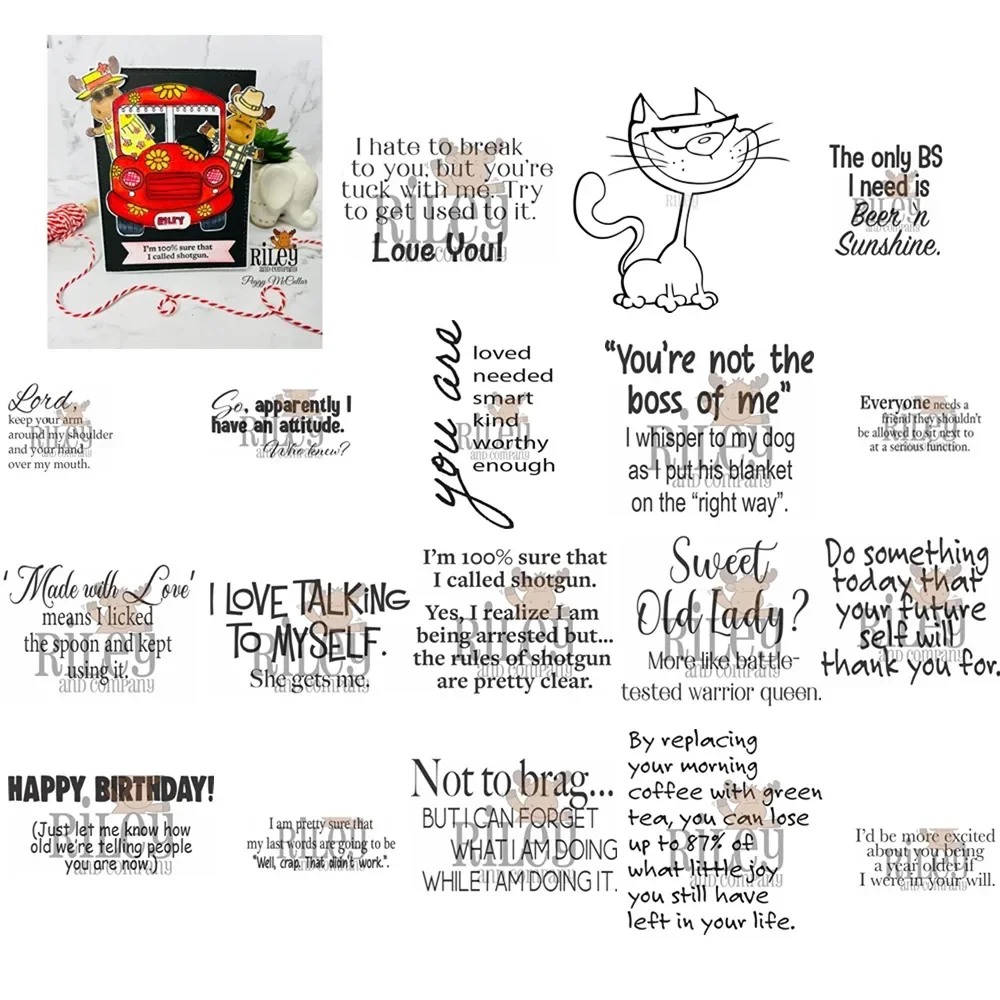 RILEY
I'm 100% sure that
I called shotgun.
RiLEY
AND COMPANY
Peggy McCollar
I hate to break
to you, but you're
tuck with me. Try
to get used to it.
Love You!
RiLEY
AND COMPANY
RiLEY
AND COMPANY
The only BS
I need is
Beer 'n
Sunshine.
RiLEY
AND COMPANY
Lord,
keep your arm
around my shoulder
and your hand
over my mouth.
RiLEY
So, apparently I
have an attitude.
Who knew?
RiLEY
AND COMPANY
you are
loved
needed
smart
kind
worthy
enough
RiLEY
AND COMPANY
"You're not the
boss of me"
I whisper to my dog
as I put his blanket
on the "right way".
RiLEY
AND COMPANY
Everyone needs a
friend they shouldn't
be allowed to sit next to
at a serious function.
RiLEY
AND COMPANY
'Made with Love'
means I licked
the spoon and kept
using it.
RiLEY
AND COMPANY
I LOVE TALKING
TO MYSELF.
She gets me.
RiLEY
AND COMPANY
I'm 100% sure that
I called shotgun.
Yes, I realize I am
being arrested but...
the rules of shotgun
are pretty clear.
RiLEY
AND COMPANY
Sweet
Old Lady?
More like battle-
tested warrior queen.
RiLEY
AND COMPANY
Do something
today that
your future
self will
thank you for.
RiLEY
AND COMPANY
HAPPY BIRTHDAY!
(Just let me know how
old we're telling people
you are now.)
RiLEY
AND COMPANY
I am pretty sure that
my last words are going to be
"Well, crap. That didn't work.".
RiLEY
AND COMPANY
Not to brag...
BUT I CAN FORGET
WHAT I AM DOING
WHILE I AM DOING IT.
RiLEY
AND COMPANY
By replacing
your morning
coffee with green
tea, you can lose
up to 87% of
what little joy
you still have
left in your life.
RiLEY
AND COMPANY
I'd be more excited
about you being
a year older if
I were in your will.
RiLEY
AND COMPANY